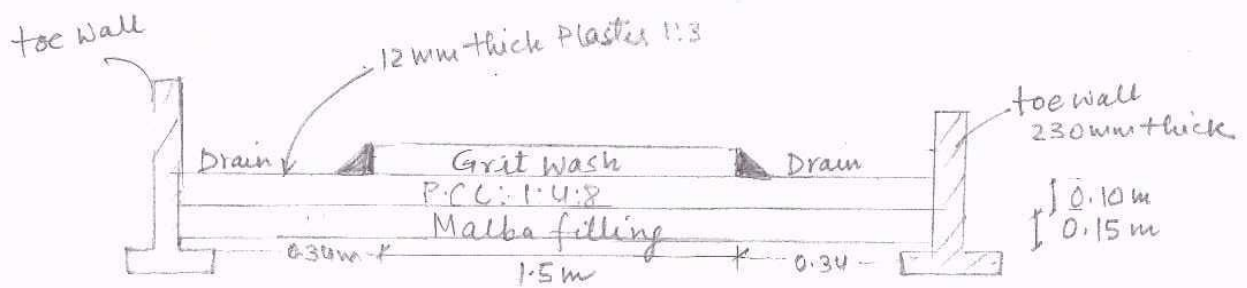 toe wall
12mm thick Plaster 1:3
toe wall
230mm thick
Drain
Grit wash
Drain
P.C.C: 1:4:8
0.10m
Malba filling
0.15m
0.34m
1.5m
0.34